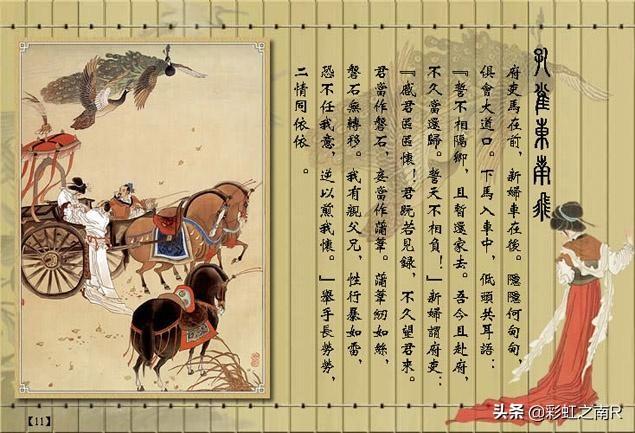 孔雀東南飛
府吏馬在前，新婦車在後。隱隱何甸甸，
俱會大道口。下馬入車中，低頭共耳語：
『誓不相隔卿，且暫還家去。吾今且赴府，
不久當還歸。誓天不相負！』新婦謂府吏：
『感君區區懷！君既若見錄，不久望君來。
君當作磐石，妾當作蒲葦。蒲葦紉如絲，
磐石無轉移。我有親父兄，性行暴如雷，
恐不任我意，逆以煎我懷。』舉手長勞勞，
二情同依依。
【11】
头条 @彩虹之南R